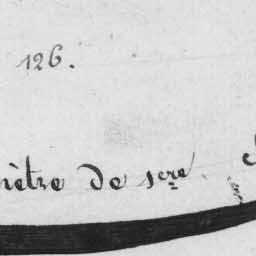 126.
mètre de 1ere